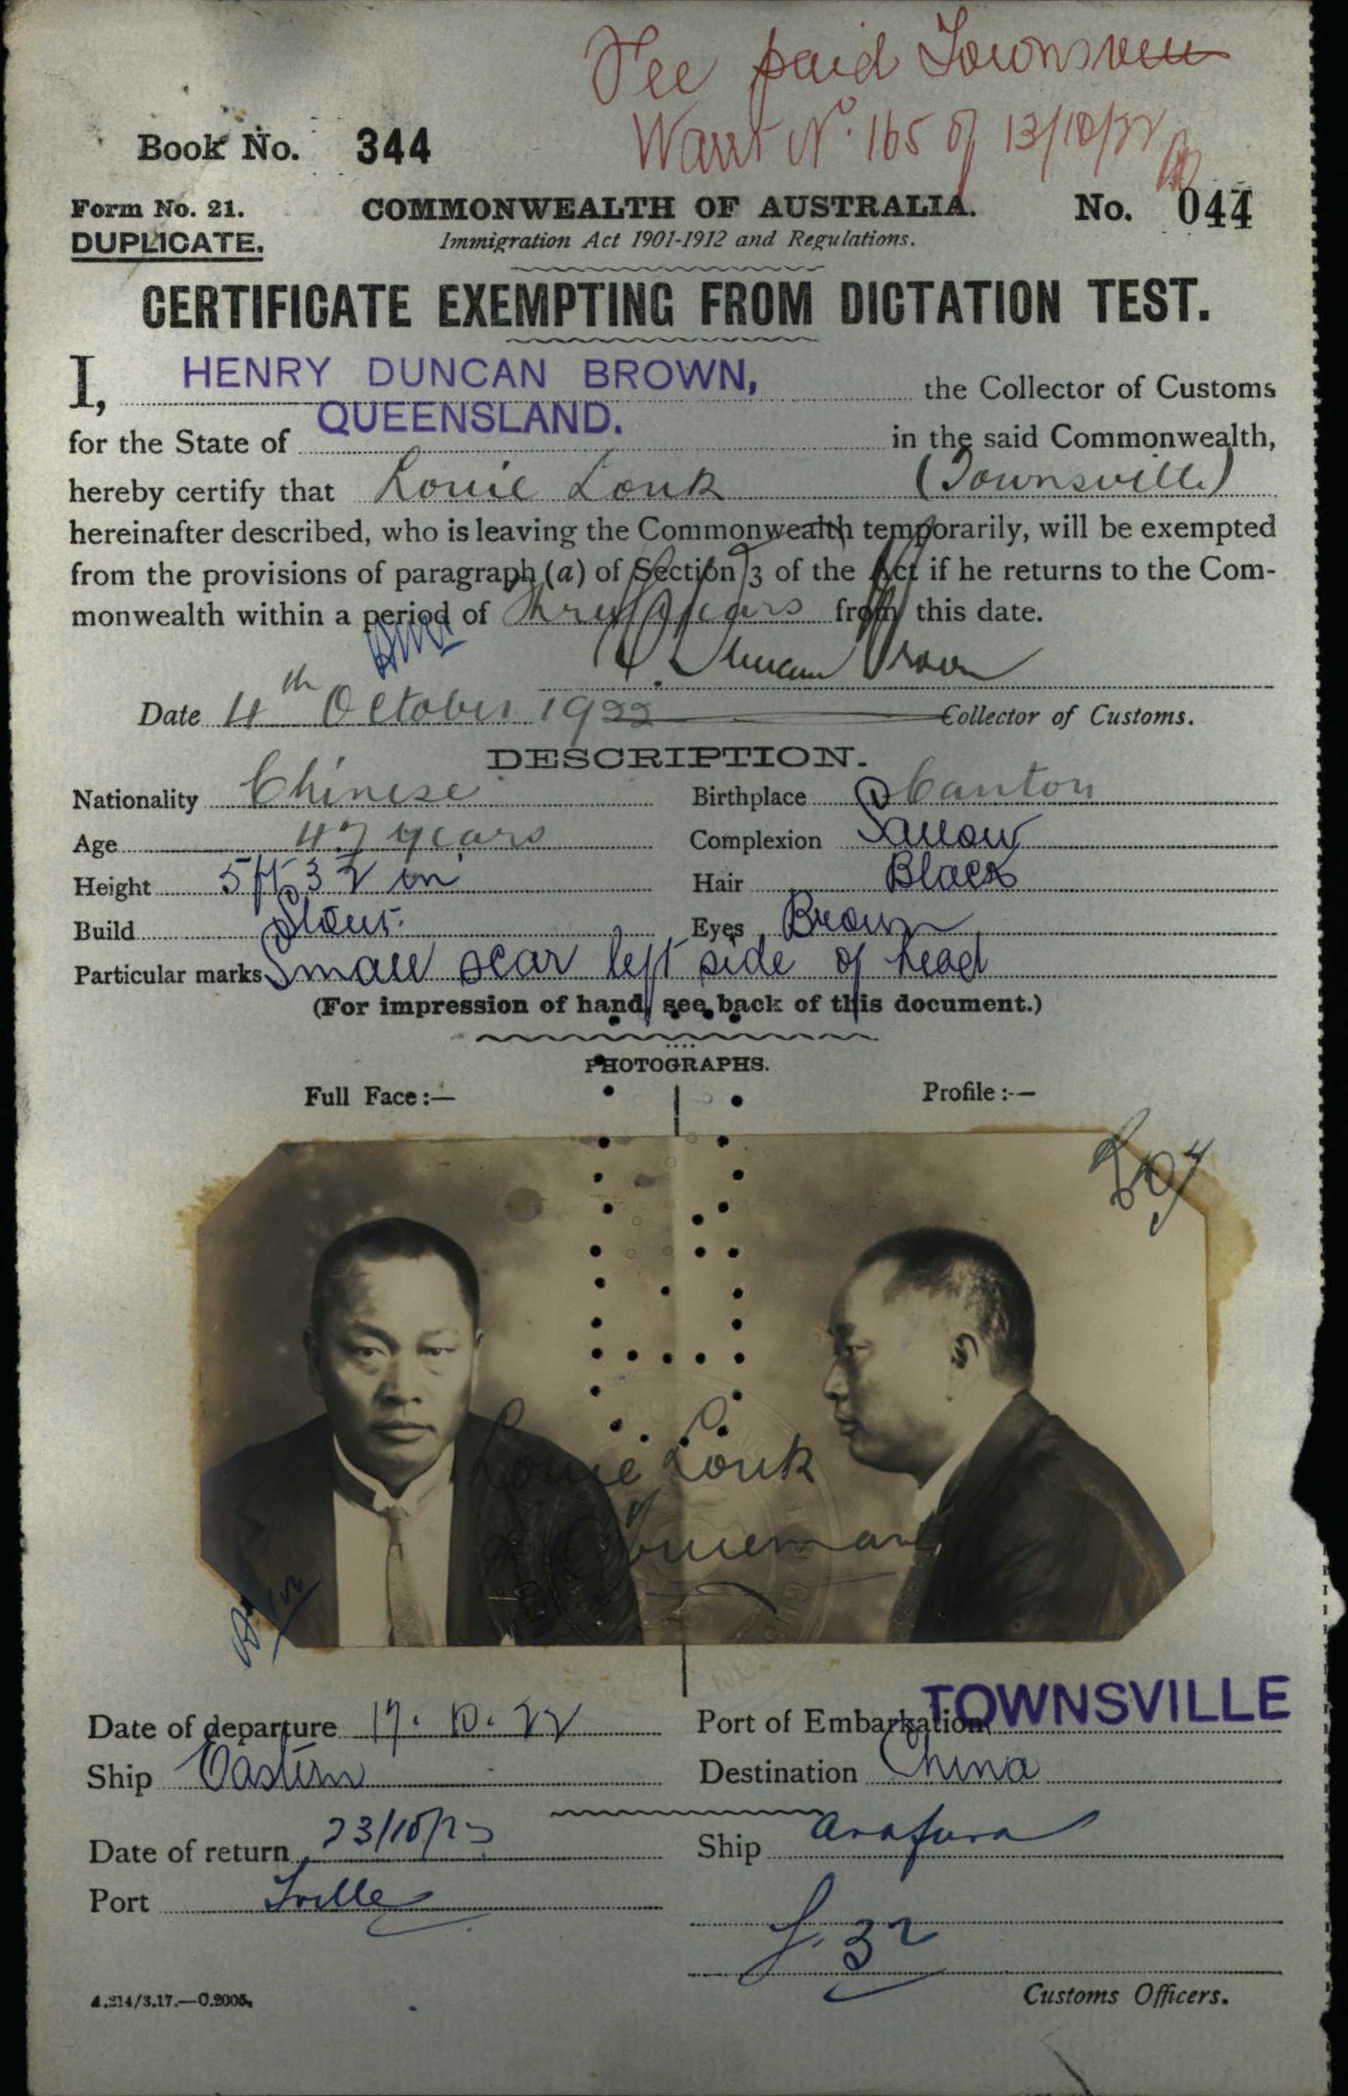 Fee paid Townsville
Warrt No. 165 of 13/10/22
Book No. 344
Form No. 21. COMMONWEALTH OF AUSTRALIA. No. 044
DUPLICATE. Immigration Act 1901-1912 and Regulations.
CERTIFICATE EXEMPTING FROM DICTATION TEST.
I, HENRY DUNCAN BROWN, the Collector of Customs
for the State of QUEENSLAND. in the said Commonwealth,
hereby certify that Louie Louk (Townsville)
hereinafter described, who is leaving the Commonwealth temporarily, will be exempted
from the provisions of paragraph (a) of Section 3 of the Act if he returns to the Com-
monwealth within a period of three years from this date.
H. Duncan Brown
Date 4th October 1922 Collector of Customs.
DESCRIPTION.
Nationality Chinese Birthplace Canton
Age 47 years Complexion Sallow
Height 5 ft 3½ in Hair Black
Build Stout. Eyes Brown
Particular marks Small scar left side of head
(For impression of hand, see back of this document.)
PHOTOGRAPHS.
Full Face:— Profile:—
Louie Louk
Date of departure 17.10.22 Port of Embarkation TOWNSVILLE
Ship Eastern Destination China
Date of return 23/10/25 Ship Arafura
Port Tville
Customs Officers.
A.214/3.17.—C.2005.